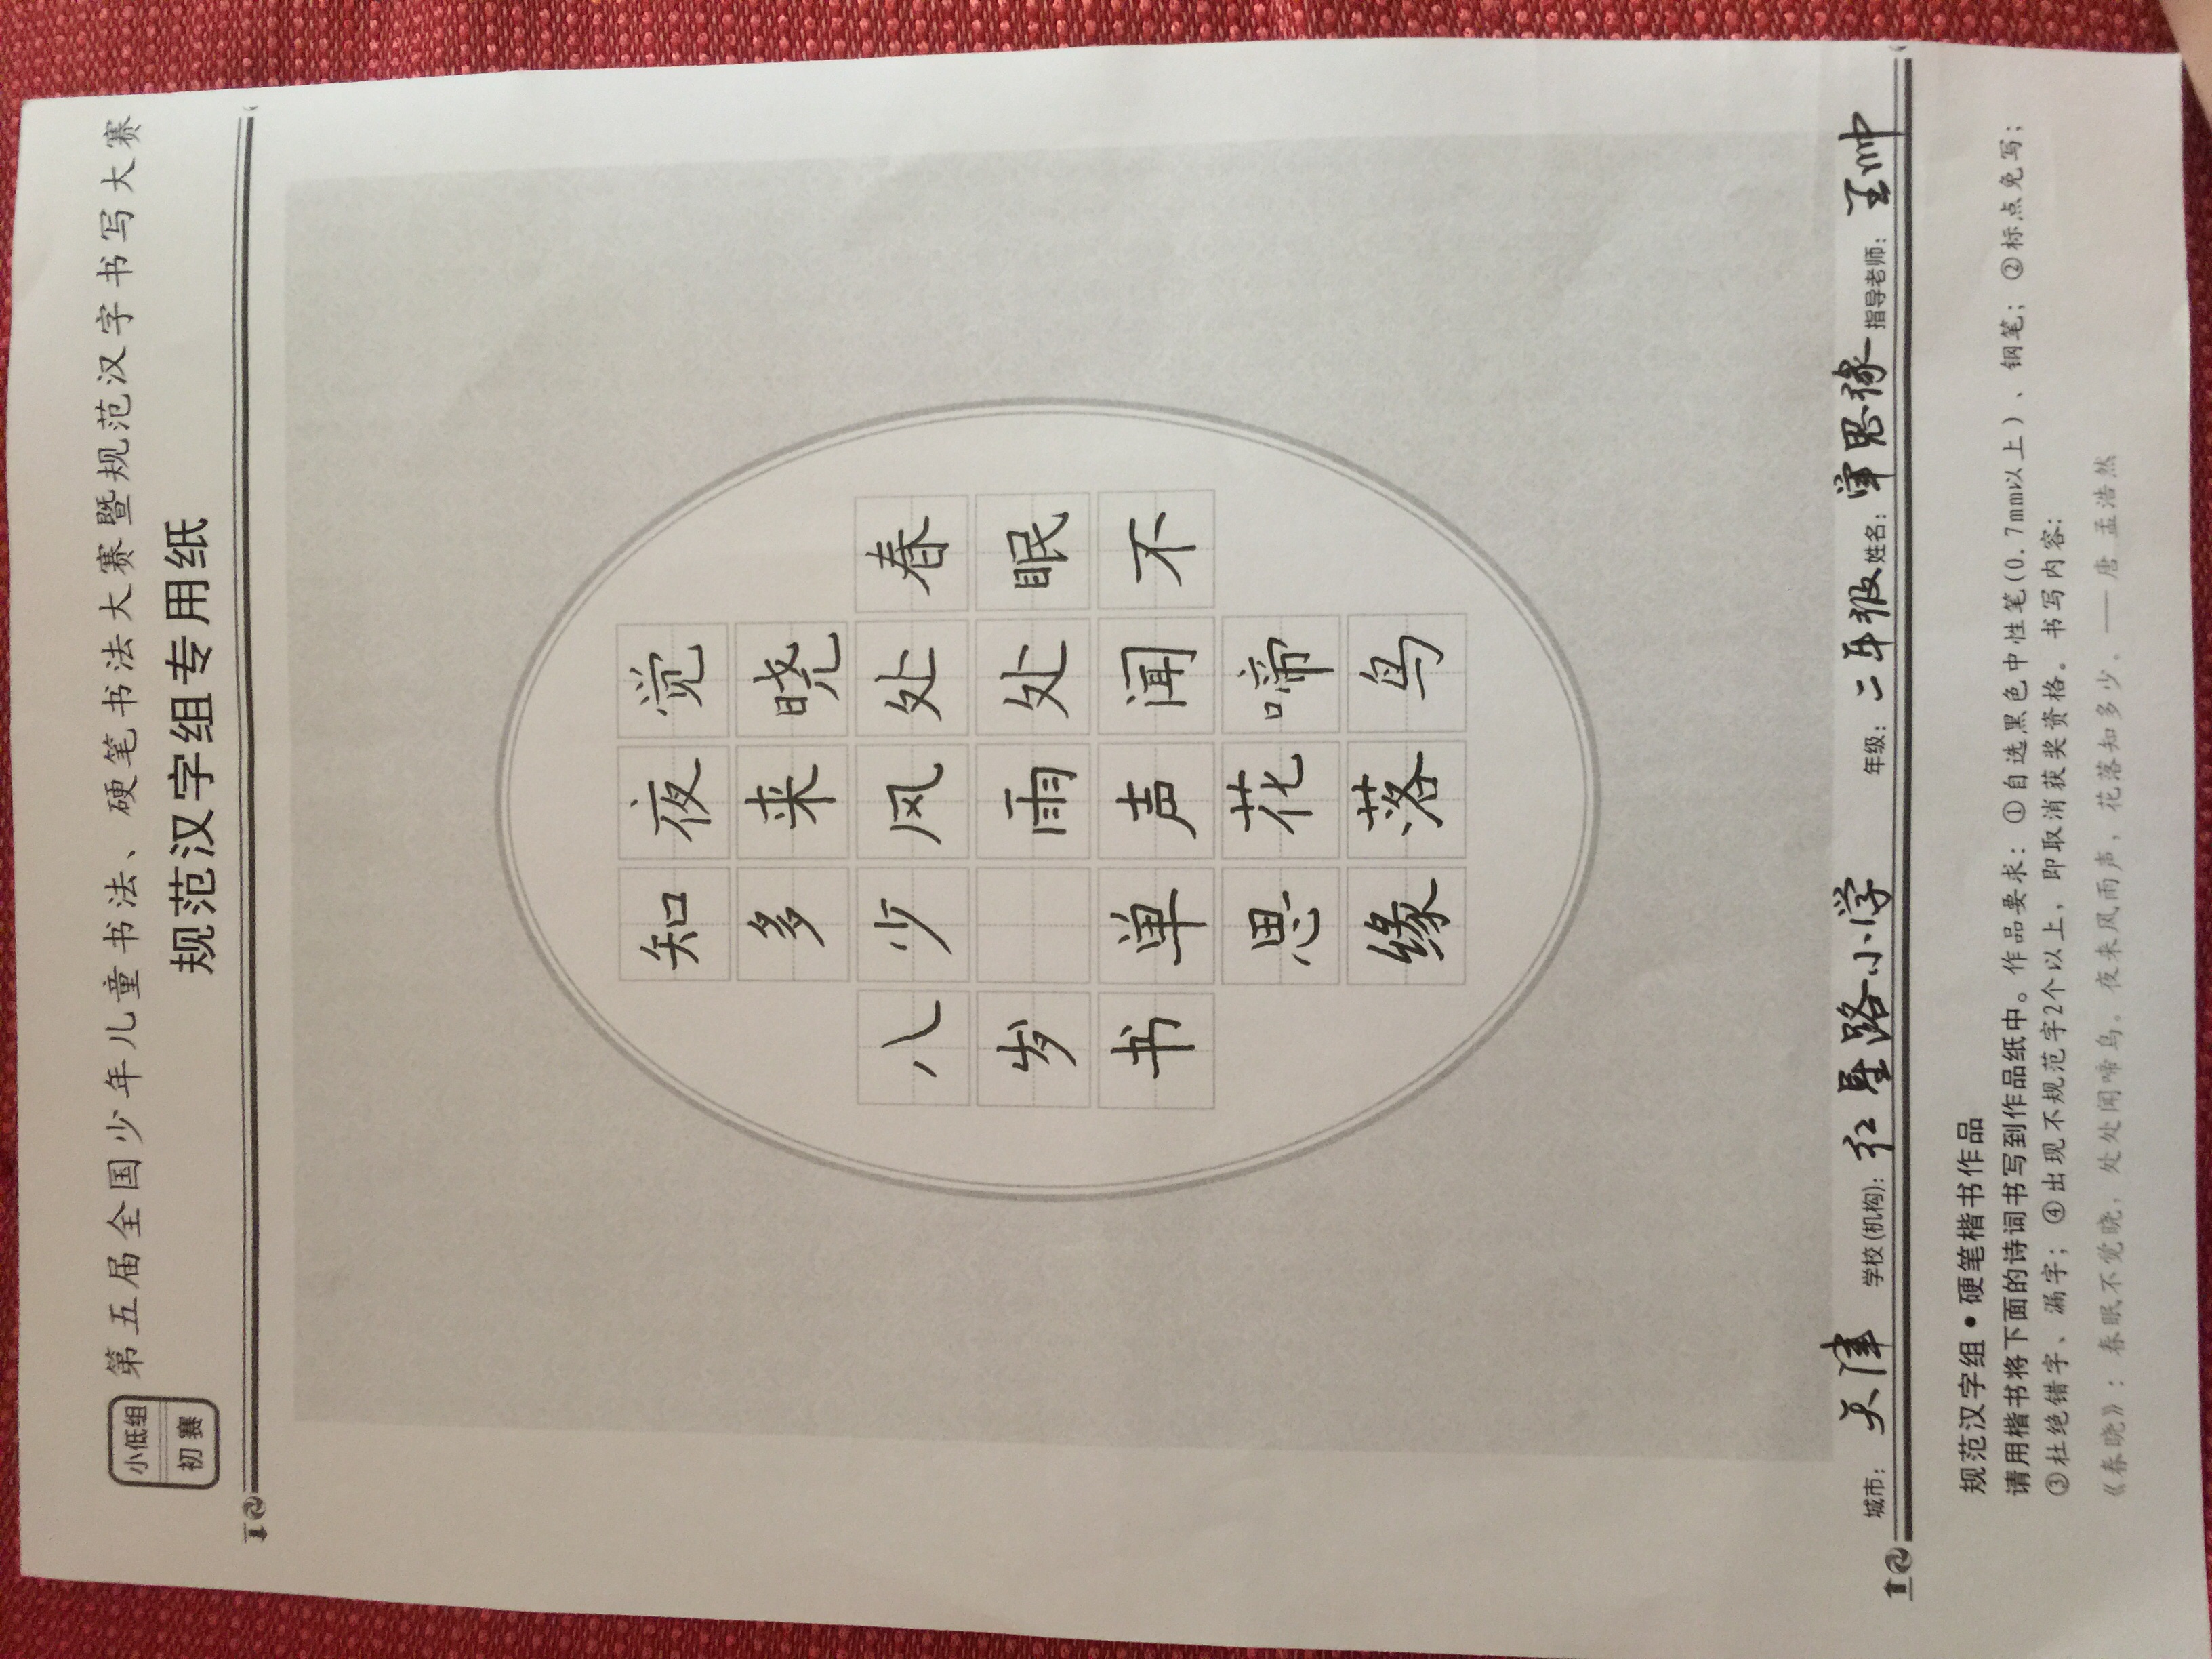 小低组
初赛
第五届全国少年儿童书法、硬笔书法大赛暨规范汉字书写大赛
规范汉字组专用纸
春眠不
觉晓处处闻啼鸟
夜来风雨声花落
知多少 单思缘
八岁书
城市：天津 学校(机构)：红星路小学 年级：二年级 姓名：单思缘 指导老师：王帅
规范汉字组•硬笔楷书作品
请用楷书将下面的诗词书写到作品纸中。作品要求：①自选黑色中性笔(0.7mm以上)、钢笔；②标点免写；
③杜绝错字、漏字；④出现不规范字2个以上，即取消获奖资格。书写内容:
《春晓》：春眠不觉晓，处处闻啼鸟。夜来风雨声，花落知多少。——唐 孟浩然